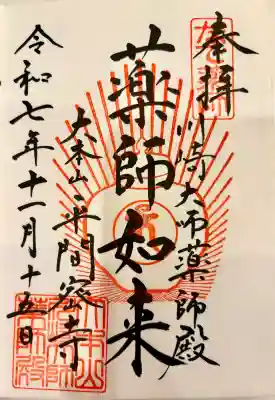 奉拝
川崎大師薬師殿
薬師如来
大本山平間密寺
令和七年十一月十五日